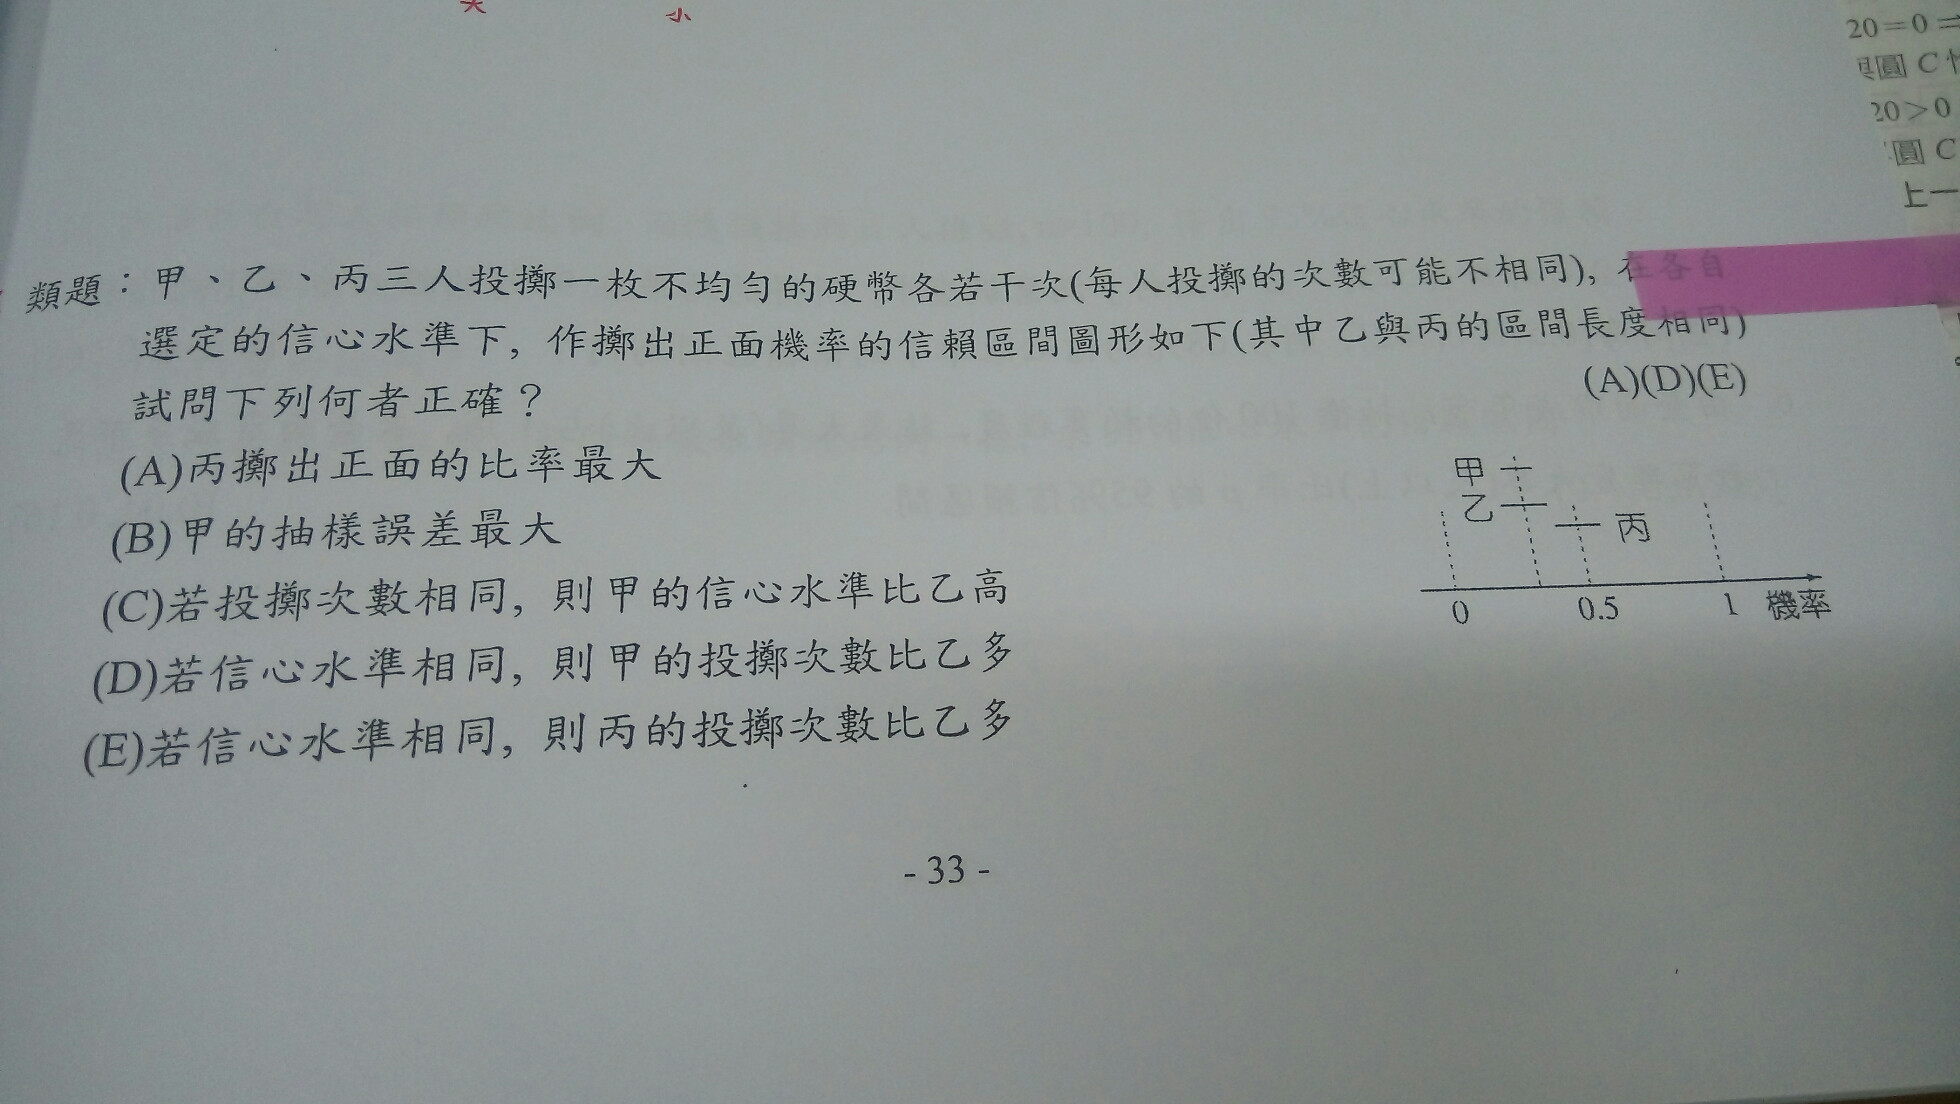 大
小
20=0
圓 C
20>0
圓 C
上一
類題：甲、乙、丙三人投擲一枚不均勻的硬幣各若干次(每人投擲的次數可能不相同), 在各自
選定的信心水準下, 作擲出正面機率的信賴區間圖形如下(其中乙與丙的區間長度相同)
試問下列何者正確？
(A)(D)(E)
(A)丙擲出正面的比率最大
(B)甲的抽樣誤差最大
(C)若投擲次數相同, 則甲的信心水準比乙高
(D)若信心水準相同, 則甲的投擲次數比乙多
(E)若信心水準相同, 則丙的投擲次數比乙多
甲
乙
丙
0 0.5 1 機率
- 33 -